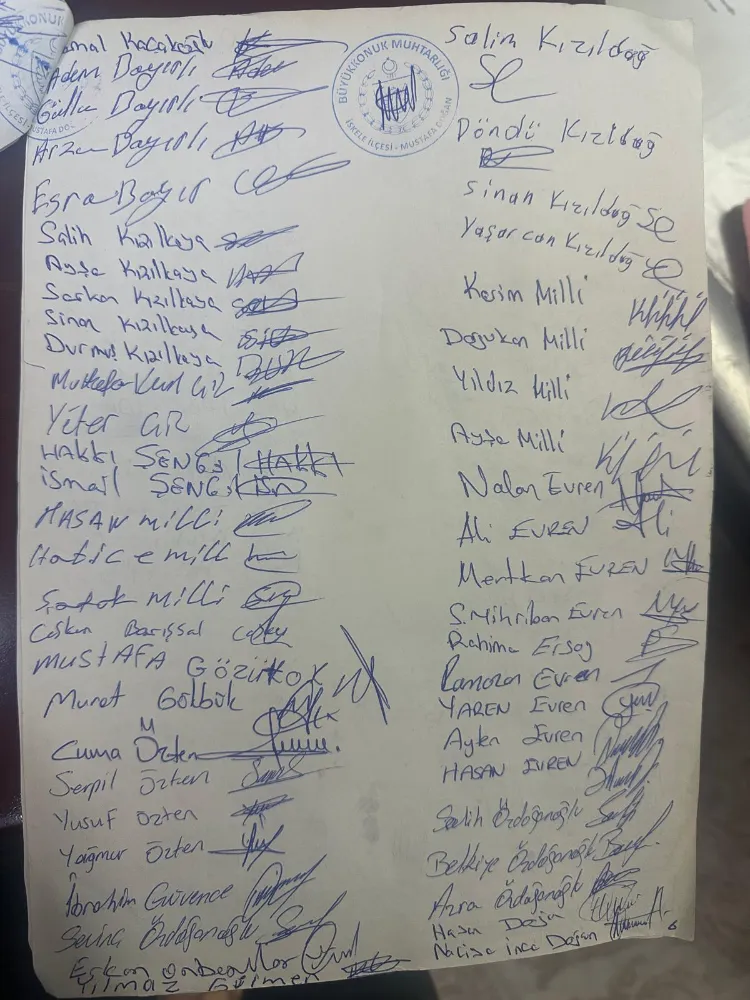 Kaçakoğlu
Adem Dayırlı
Güllü Dayırlı
Arzu Dayırlı
Esra Bayır
Salih Kızılkaya
Ayşe Kızılkaya
Serkan Kızılkaya
Sinan Kızılkaya
Durmuş Kızılkaya
Mustafa Gir
Yeter Gir
HAKKI ŞENGİL HAKKI
İSMAİL ŞENGİL İSM
HASAN MİLLİ
Hatice milli
milli
Coşkun Barışsal
MUSTAFA GÖZÜKOK
Murat Gölbük
Cuma Özten
Serpil Özten
Yusuf Özten
Yağmur Özten
İbrahim Güvence
Sevinç Özdoğanoğlu
Erkan Onbeşıllar
Yılmaz
BÜYÜKKONUK MUHTARLIĞI
İSKELE İLÇESİ - MUSTAFA DOĞAN
Salim Kızıldağ
Döndü Kızıldağ
Sinan Kızıldağ
Yaşarcan Kızıldağ
Kerim Milli
Doğukan Milli
Yıldız Milli
Ayşe Milli
Nalan Evren
Ali EVREN Ali
Mertkan EVREN
S. Mihriban Evren
Rahime Ersoy
Ramazan Evren
YAREN Evren
Ayten Evren
HASAN EVREN
Salih Özdoğanoğlu
Belkiye Özdoğanoğlu
Azra Özdoğanoğlu
Hasan Doğan
Nazise İnce Doğan